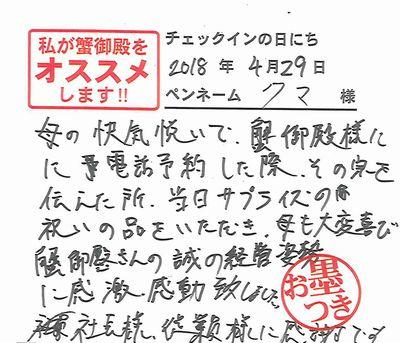 私が蟹御殿を
オススメ
します!!
チェックインの日にち
2018 年 4月29日
ペンネーム クマ 様
母の快気悦いで、蟹御殿様に
に電話予約した際、その宗を
伝えた所、当日サプライズの
祝いの品をいただき、母も大変喜び
蟹御殿さんの誠の経営姿勢
に感激感動致しました。
社長様、従業様に感謝です
お墨
つき